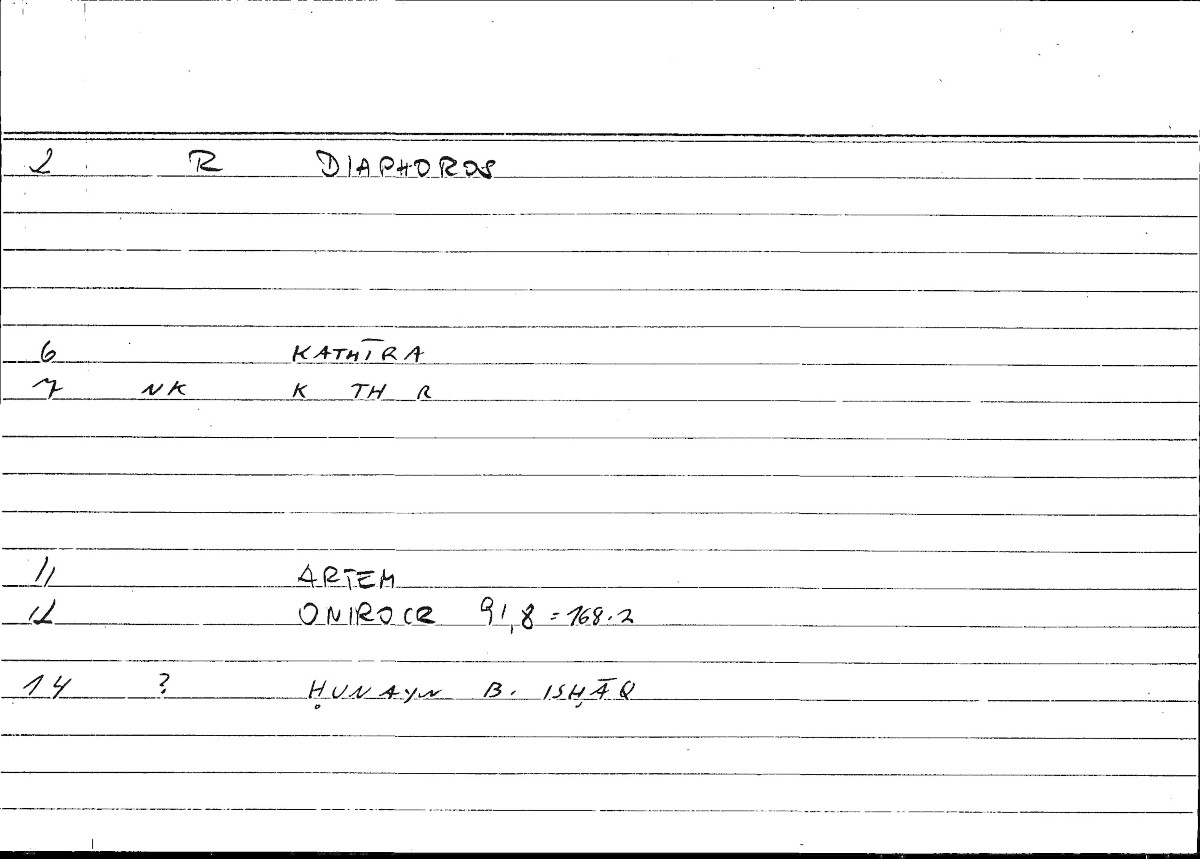 2 R DIAPHOROS
6 KATHĪRA
7 NK K TH R
11 ARTEM
12 ONIROCR 91,8 = 168.2
14 ? ḤUNAYN B. ISḤĀQ